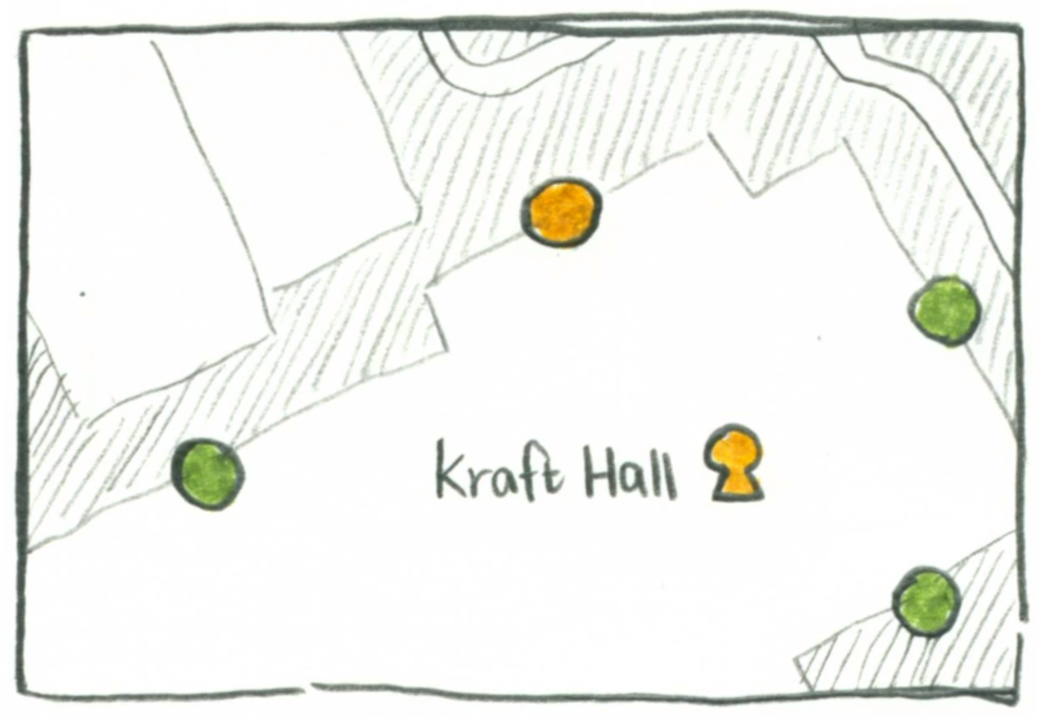 Kraft Hall